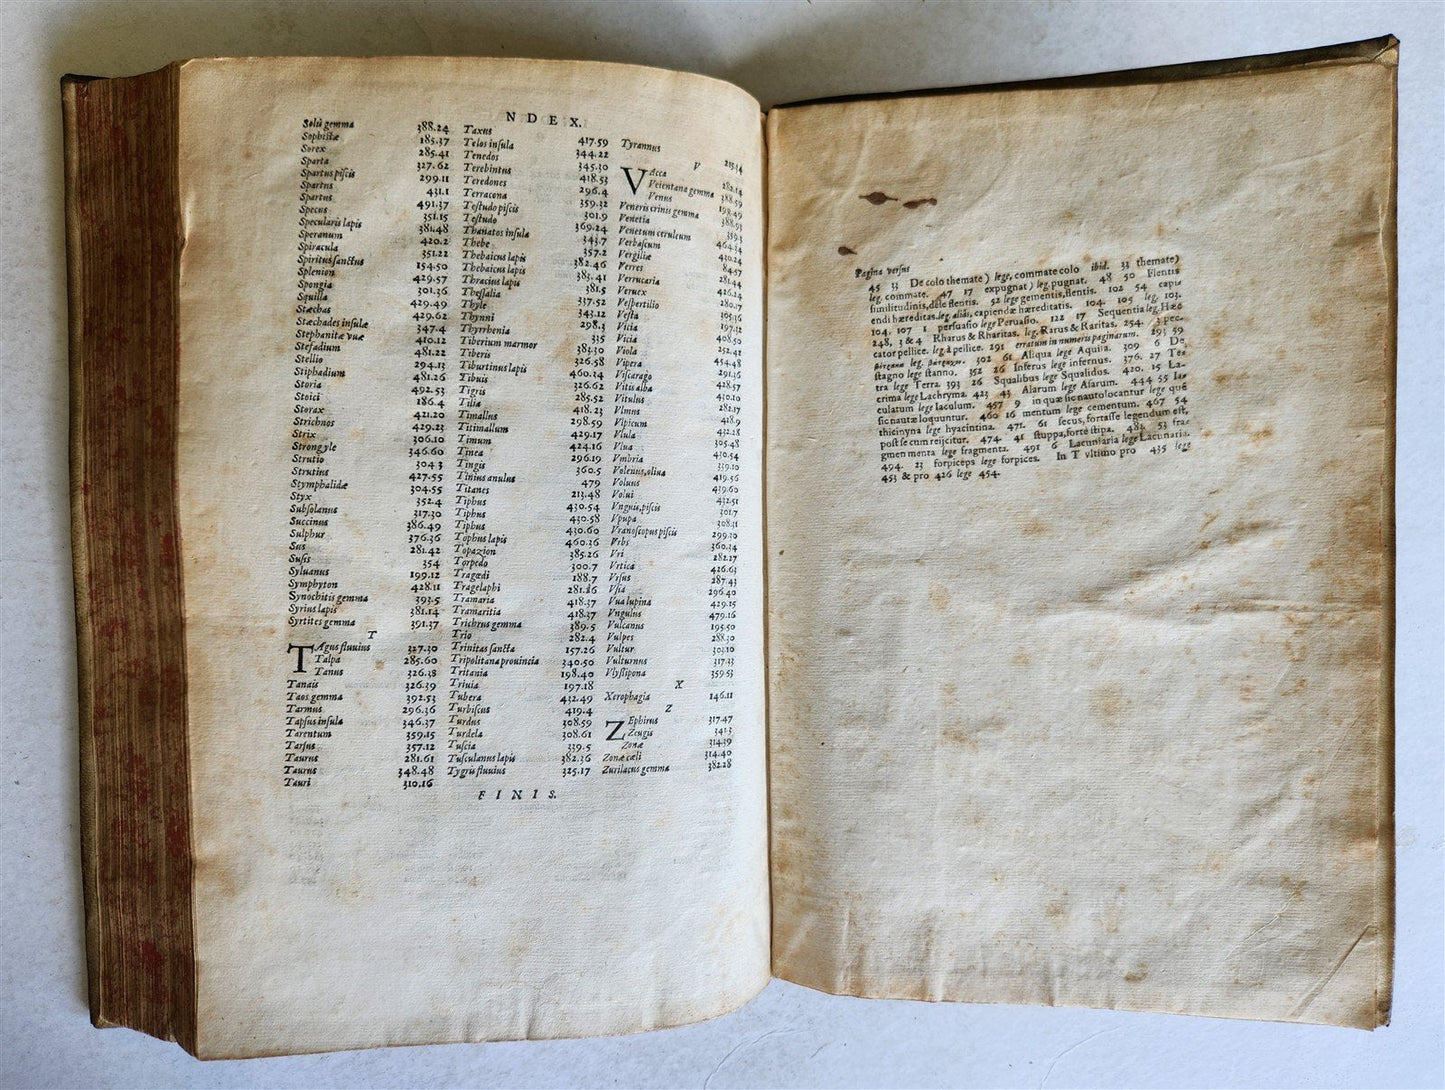 NDEX.
Solis gemma 388.24
Sophistæ 185.37
Sorex 285.41
Sparta 327.62
Spartus piscis 299.11
Spartus 431.1
Spartus 491.37
Specus 351.15
Specularis lapis 381.48
Speranum 420.2
Spiracula 351.22
Spiritus sanctus 154.50
Splenion 429.57
Spongia 301.36
Squilla 429.49
Stæchas 429.62
Stæchades insulæ 347.4
Stephanitæ vuæ 410.12
Stefadium 481.22
Stellio 294.13
Stiphadium 481.26
Storia 492.53
Stoici 186.4
Storax 421.20
Strichnos 429.23
Strix 306.10
Strongyle 346.60
Strutio 304 3
Strutius 427.55
Stymphalidæ 304.55
Styx 352.4
Subsolanus 317.30
Succinus 386.49
Sulphur 376.36
Sus 281.42
Susis 354
Syluanus 199.12
Symphyton 428.11
Synochitis gemma 393.5
Syrius lapis 381.14
Syrtites gemma 391.37
T
TAgus fluuius 327.30
Talpa 285.60
Tanus 326.38
Tanais 326.39
Taos gemma 392.53
Tarmus 296.36
Tapsus insula 346.37
Tarentum 359.15
Tarsus 357.12
Taurus 281.61
Taurus 348.48
Tauri 310.16
Taxus 417.59
Telos insula 344.22
Tenedos 345.30
Terebintus 418.53
Teredones 296.4
Terracona 359.32
Testudo piscis 301.9
Testudo 369.24
Thanatos insula 343.7
Thebe 357.2
Thebaicus lapis 382.46
Thebaicus lapis 383.41
Thracius lapis 381.5
Thessalia 337.52
Thyle 343.12
Thynni 298.3
Thyrrhenia 335
Tiberium marmor 383.30
Tiberis 326.58
Tiburtinus lapis 460.14
Tibuis 326.62
Tigris 285.52
Tilia 418.23
Timallus 298.59
Titimallum 429.17
Timum 424.16
Tinea 296.19
Tingis 360.5
Tinius anulus 479
Titanes 213.48
Tiphus 430.54
Tiphus 430.58
Tiphus 430.60
Tophus lapis 460.36
Topazion 385.26
Torpedo 300.7
Tragœdi 188.7
Tragelaphi 281.26
Tramaria 418.37
Tramaritia 418.37
Trichrus gemma 389.5
Trio 282.4
Trinitas sancta 157.26
Tripolitana prouincia 340.50
Tritania 198.40
Triuia 197.18
Tubera 432.49
Turbiscus 419.4
Turdus 308.59
Turdela 308.61
Tuscia 339.5
Tusculanus lapis 382.36
Tygris fluuius 325.17
Tyrannus 215.14
V
VAcca 282.14
Veientana gemma 388.59
Venus 198.49
Veneris crinis gemma 388.93
Venetia 359.3
Venetum ceruleum 464.34
Verbascum 430.24
Vergiliæ 84.57
Verres 281.44
Verrucaria 426.24
Veruex 280.17
Vespertilio 305.36
Vesta 197.32
Vicia 408.50
Vicia 252.41
Viola 454.48
Vipera 291.36
Viscarago 428.57
Vitis alba 410.10
Vitulus 282.17
Vlmus 418.9
Vlpicum 432.28
Vlula 305.48
Vlua 430.54
Vmbria 339.10
Volenus,oliua 419.56
Voluus 439.60
Volui 432.51
Vnguis,piscis 301.7
Vpupa 308.31
Vranoscopus piscis 299.30
Vrbs 360.34
Vri 282.27
Vrtica 426.63
Vrsus 287.43
Vsia 296.40
Vua lupina 429.15
Vngulus 479.16
Vulcanus 195.50
Vulpes 288.30
Vultur 303.10
Vulturnus 317.33
Vlyssipona 359.53
X
Xerophagia 146.11
Z
ZEphirus 317.47
Zeugis 341.3
Zonæ 314.39
Zonæ cæli 314.40
Zurilacus gemma 382.28
FINIS.
Pagina versus
45 33 De colo themate) lege, commate colo ibid. 33 themate)
leg. commate. 47 17 expugnat) leg. pugnat. 48 50 Flentis
similitudinis, dele flentis. 52 lege gementis, flentis. 102 54 capi-
endi hæreditas. leg. alibi, capiendæ hæreditatis. 104. 105 leg. 103.
104. 107 1 persuasio lege Peruasio. 122 17 Sequentia leg. Hæc
248, 3 & 4 Rharus & Rharitas. leg. Rarus & Raritas. 254. 3 pec-
cator pellice. leg. à pellice. 291 erratum in numeris paginarum. 293 59
leg. 302 61 Aliqua lege Aquila. 309 6 De
stagno lege stanno. 352 26 Inferus lege infernus. 376. 27 Te-
tra lege Terra. 393 26 Squalibus lege Squalidos. 420. 15 La-
crima lege Lachryma. 423 45 Alarum lege Asarum. 444 55 Ia-
culatum lege iaculum. 457 9 in quæ sic nauto locantur lege quę
sic nautæ loquuntur. 460 16 mentum lege cementum. 467 54
thicinyna lege hyacintina. 471. 61 secus, fortasse legendum est,
post se cum reijcitur. 474 41 stuppa, forte stipa. 484 53 frac
gmen menta lege fragmenta. 491 6 Lacuniaria lege Lacunaria.
494. 23 forpiceps lege forpices. In T vltimo pro 435 lege
453 & pro 426 lege 454.